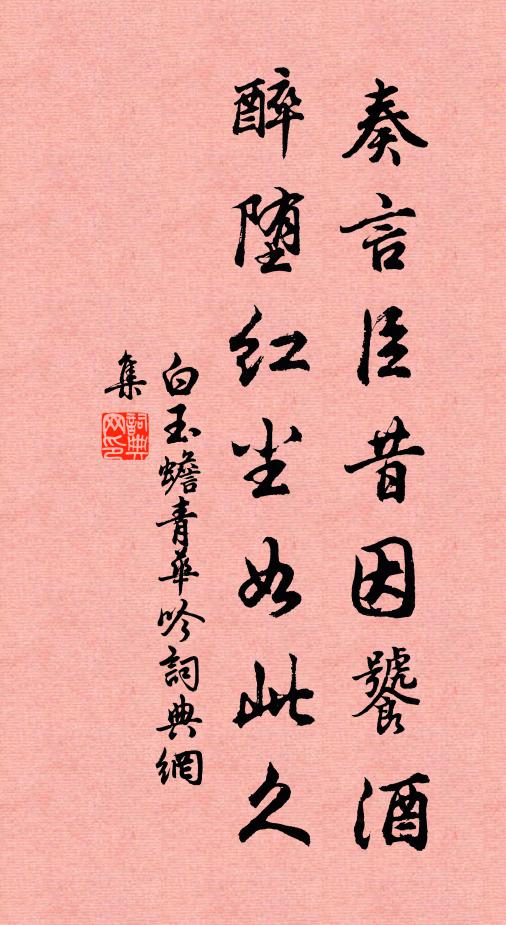 奏言臣昔因饕酒
醉堕红尘如此久
白玉蟾青華吟詞典網
集
詞典
网印